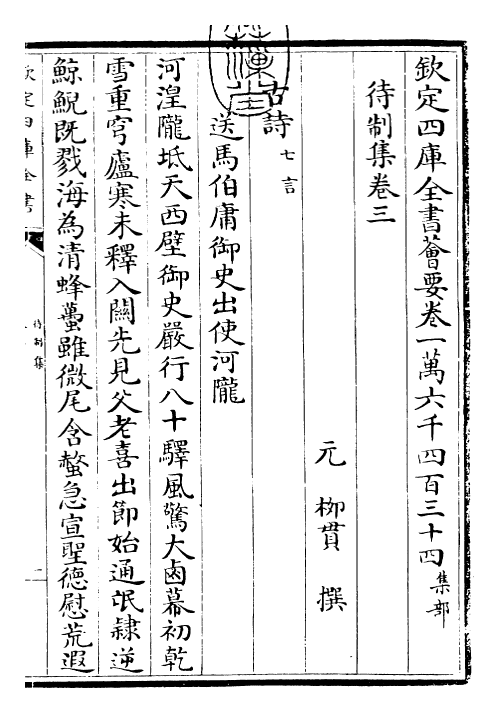 欽定四庫全書薈要卷一萬六千四百三十四 集部
待制集卷三
元 柳貫 撰
古詩 七言
送馬伯庸御史出使河隴
河湟隴坻天西壁御史嚴行八十驛風驚大鹵幕初乾
雪重穹廬寒未釋入關先見父老喜出節始通氓隷逆
鯨鯢既戮海為清蜂蠆雖微尾含螫急宣聖德慰荒遐
欽定四庫全書
待制集